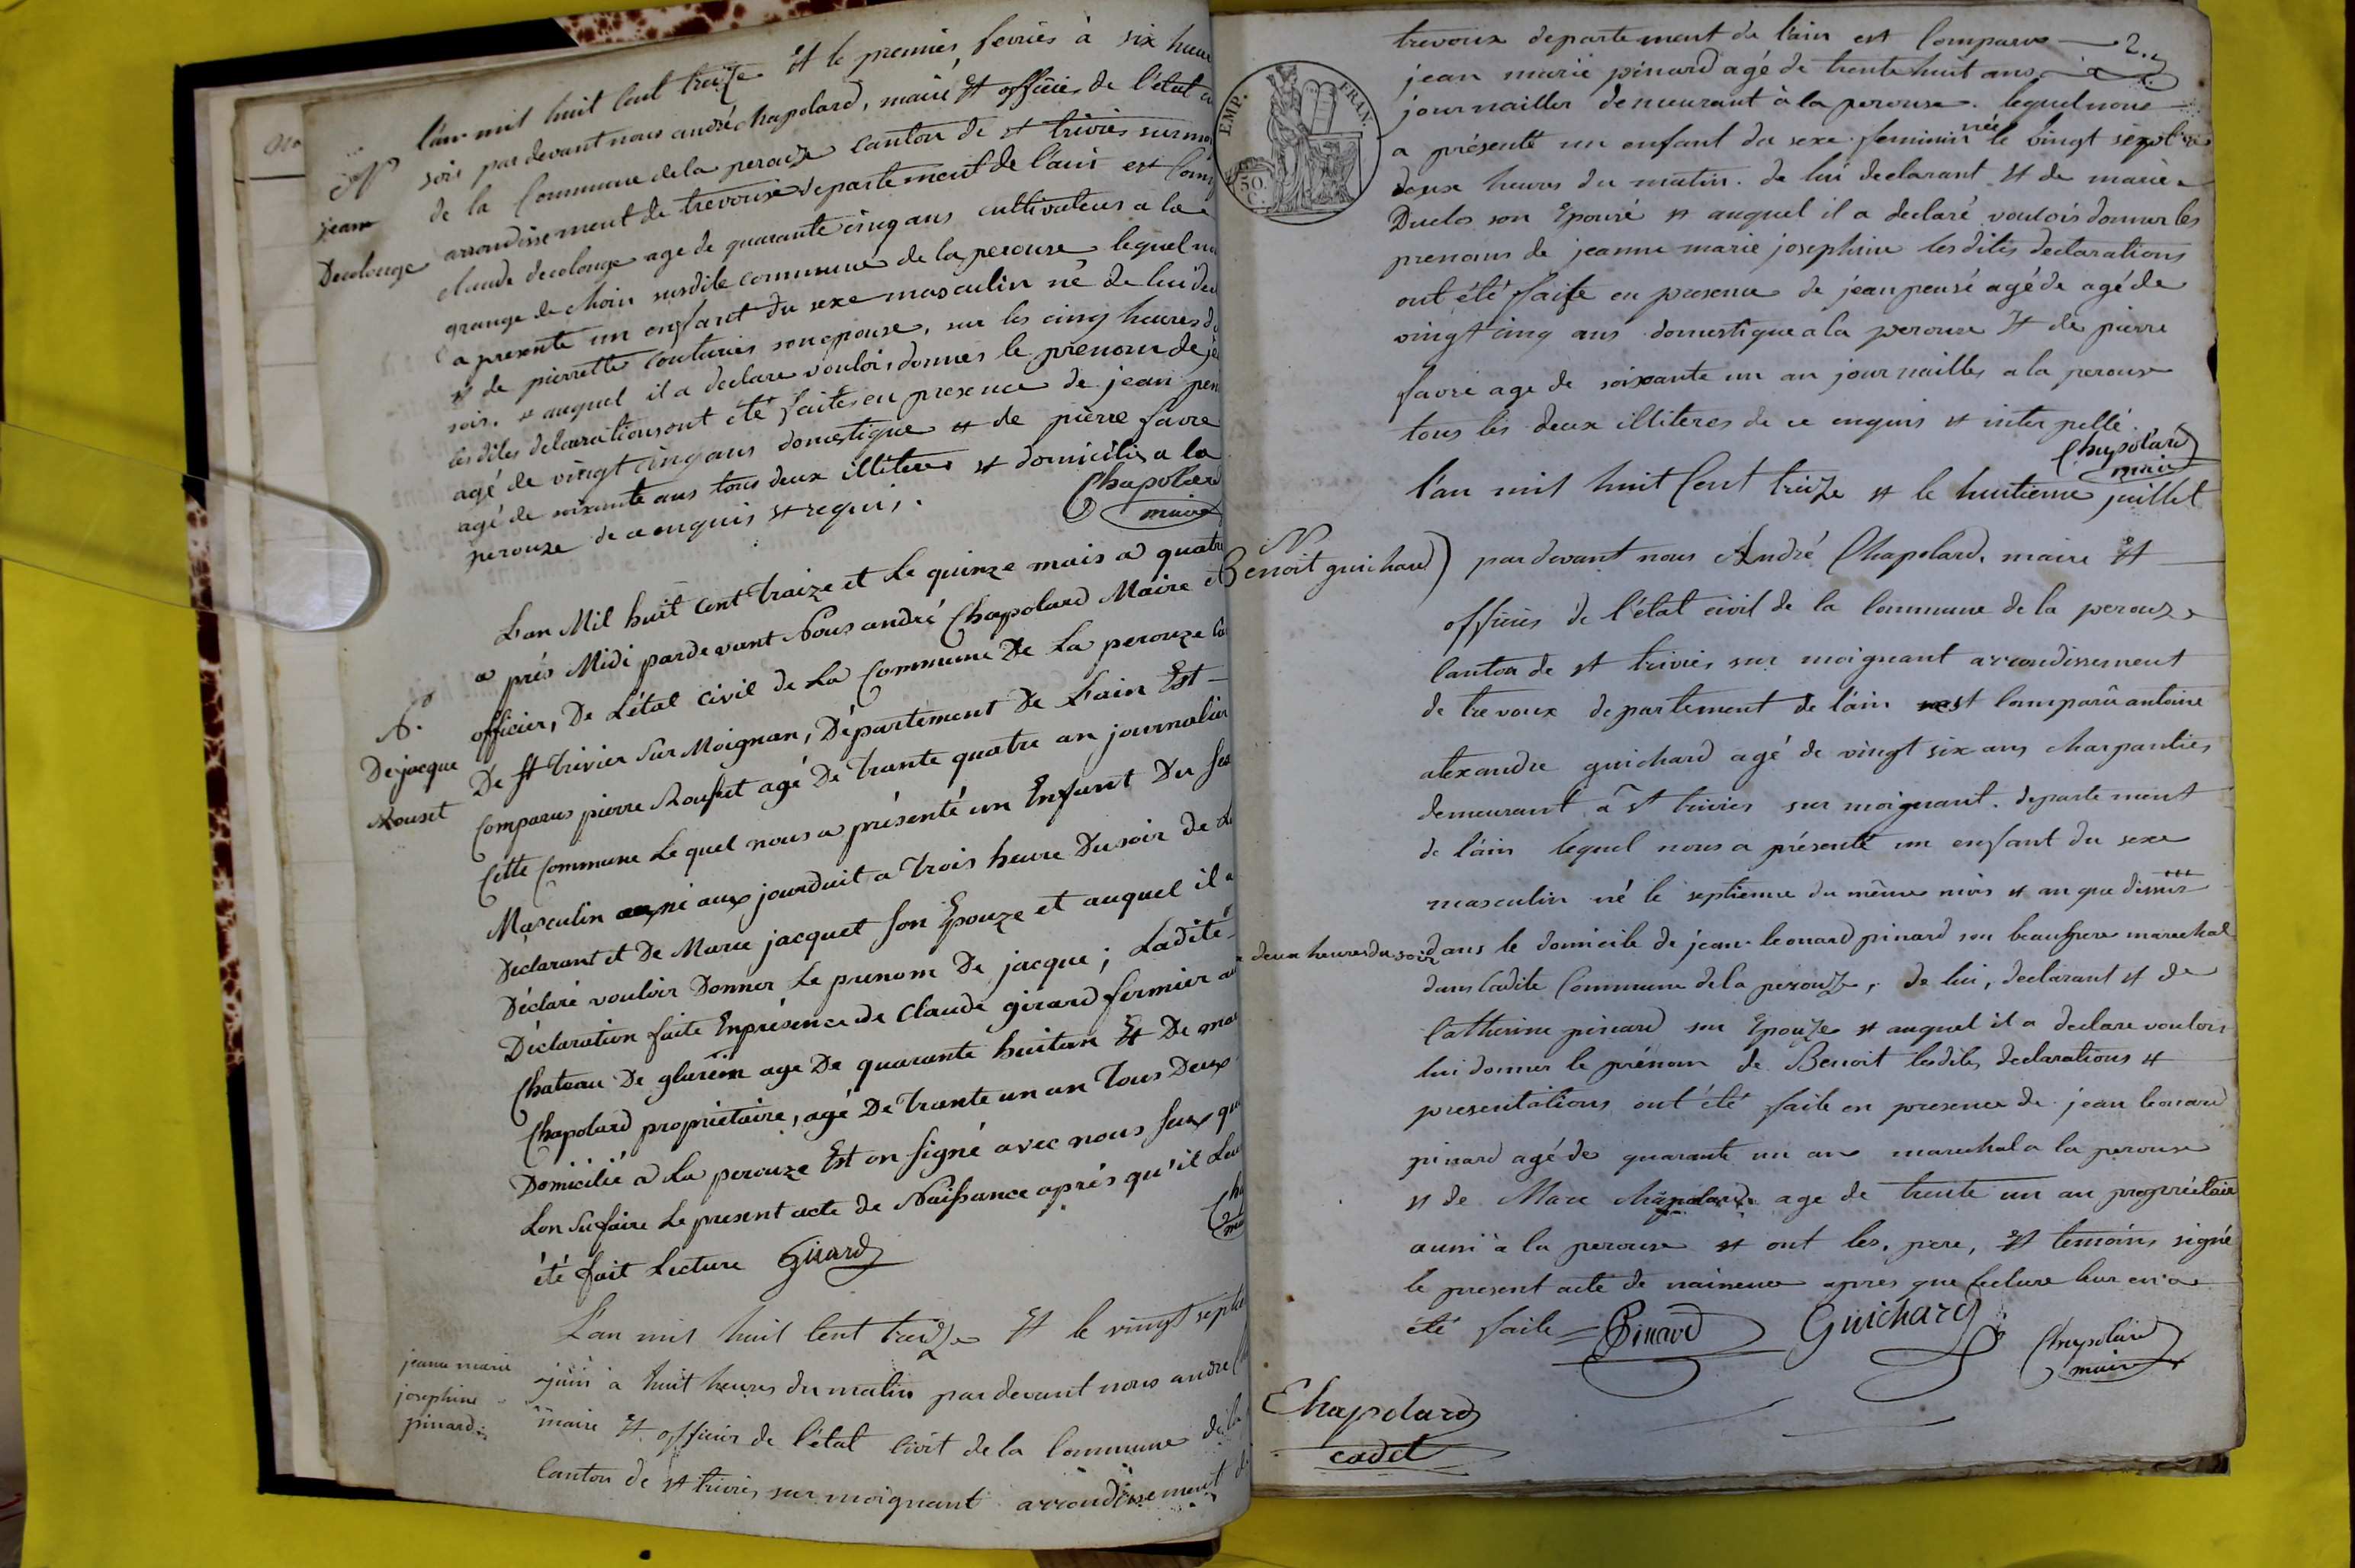 l'an mil huit Cent treize Et le premier fevrier à six heure
N
soir par devant nous andré chapolard, maire Et officier de l'état
jean
de la Commune de la perouze Canton de st trivier sur
Decolonge
arrondissement de trevoux departement de l'ain est Com
claude decolonge age de quarante cinq ans cultivateur a la
grange de choin susdite commune de la perouse lequel
a presente un enfant du sexe masculin né de lui
et de pierrette Couturier son epouse, sur les cinq heures
soir. et auquel il a declare vouloir donner le prenom de
les dites declarations ont été faites en presence de jean
agé de vingt cinq ans domestique et de pierre favre
agé de soixante ans tous deux illiteres et domicilié a la
perouze de ce enquis et requis.
Chapolard
maire
L'an Mil huit cent traize et Le quinze mais a quatre
a prés Midi pardevant Nous andré Chapolard Maire et
officier, De L'état Civil de La Commune De La perouze
N.
De jacque
Rouset
De St trivier Sur Moignan, Département De L'ain Est
Comparus pierre Roußet agé De trante quatre an journalier
Cette Commune Le quel nous a présenté un Enfant Du
Masculin né aux jourduit a trois heure Du soir de
Déclarant et De Marie jacquet Son Epouze et auquel il a
Déclaré vouloir Donner Le prenom De jacque ; Ladite
Déclaration faite En présence de Claude girard fermier au
Chateau De glarein age De quarante huitan Et De
Chapolard propriétaire, agé De trante un an Tous Deux
Domicilié a La perouze Est on Signé avec nous
Lon Su faire Le present acte de Naißance aprés qu'il
été fait Lecture Girard
L'an mil huit Cent treize Et le vingt sept
jeanne marie
josephine
pinard
juin à huit heures du matin par devant nous andré
maire Et officier de l'état Civil de la Commune de la
Canton de st trivier sur moignant arrondissement de
trevoux departement de l'ain est Comparu 2.
jean marie pinard agé de trente huit ans
EMP. FRAN.
50.
C.
journaillier demeurant à la perouse. lequel nous
a présenté un enfant du sexe feminin née le vingt sept
deux heures du matin. de lui declarant Et de marie
Duclos son Epouse et auquel il a declaré vouloir donner les
prenoms de jeanne marie josephine lesdites declarations
ont été faite en presence de jean agé de agé de
vingt cinq ans domestique a la perouze Et de pierre
favre age de soixante un an journaillier a la perouse
tous les deux illiteres de ce enquis et interpellé.
Chapolard
maire
l'an mil huit Cent treize et le huitieme juillet
N
Benoit guichard) par devant nous André Chapolard, maire Et
officier de l'état civil de la Commune de la perouze
Canton de st trivier sur moignant arrondissement
de trevoux departement de l'ain est Comparû antoine
alexandre guichard agé de vingt six ans charpantier
demeurant à st trivier sur moignant. departement
de l'ain lequel nous a présenté un enfant du sexe
masculin né le septieme du même mois et an que dessus
a deux heures du soir dans le domicile de jean leonard pinard son beaupere marechal
dans ladite Commune de la perouze, de lui, declarant et de
Catherine pinard son Epouze et auquel il a declare vouloir
lui donner le prénom de Benoit lesdites declarations et
presentations ont été faite en presence de jean leonard
pinard agé de quarante un an marechal a la perouse
et de Marc chapolard age de trente un an propriétaire
aussi à la perouse et ont les, pere, Et temoins signé
le present acte de naissence apres que lecture leur en a
été faite Pinard Guichard Chapolard
maire
Chapolard
cadet